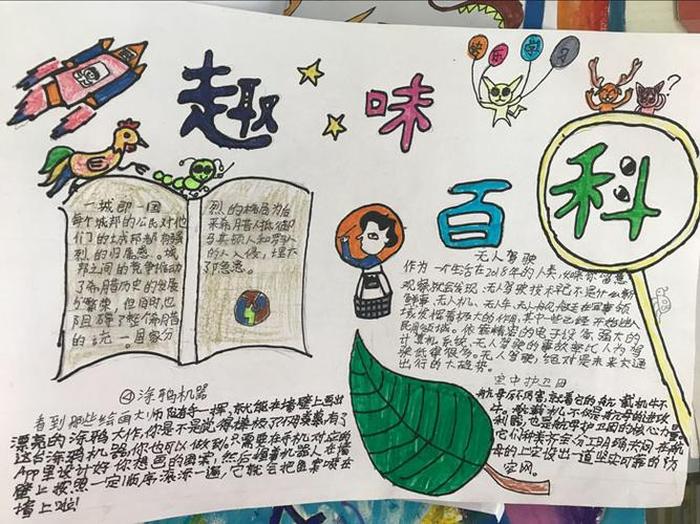 快 乐 学 习
趣 味
百 科
一城即一国
每个城邦的公民对他
们的城邦都有强
烈的归属感。城
邦之间的竞争推动
了希腊历史的发展
与繁荣,但同时也
阻碍了整个希腊
的统一。国家分
烈的格局为后
来希腊人抵御
马其顿人和罗马
人的入侵,埋下
了隐患。
无人驾驶
作为一个生活在2018年的人类,如果你留意
观察就会发现,无人驾驶技术已不是什么新
鲜事。无人机、无人车、无人船
民用领域。依靠精密的电子设备、强大的
计算机系统,无人驾驶的事故率比人为驾
驶低得很多。无人驾驶,绝对是未来交通
出行的大趋势。
空中护卫用
航母厉不厉害,就看它的舰载机牛不
牛。舰载机不仅是航母的进攻
利器,也是航母护卫的核心力量
它们种类齐全,分工明确,共同在航
母的上空设出一道坚实可靠的防
空网。
④涂鸦机器
看到那些绘画大师随手一挥,就能在墙壁上画出
漂亮的涂鸦大作,你是不是觉得
这台涂鸦机器,你也可以做到,只需要在手机对应的
App里设计好你想画的图案,然后握着机器人在墙
壁上按照一定顺序滚滚一遍,它就会把图案喷在
墙上啦!